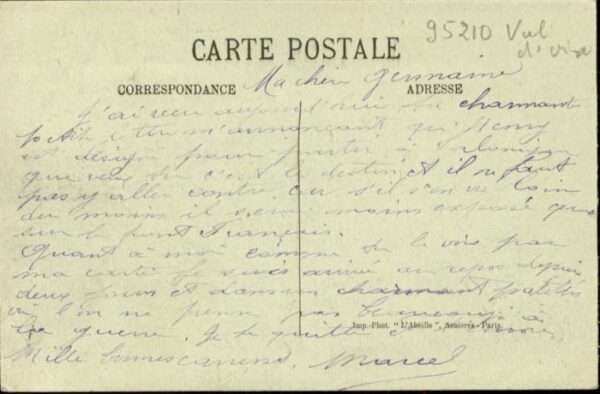 95210 Val
d'oise
CARTE POSTALE
CORRESPONDANCE
ADRESSE
Ma chère Germaine
J'ai reçu aujourd'hui ta charmante
petite lettre m'annonçant qu'Henry
est désigné pour partir à Salonique
que veux tu c'est le destin et il ne faut
pas y aller contre car s'il s'en va loin
du moins il sera moins exposé que
sur le front Français.
Quant à moi comme tu le vois par
ma carte je suis arrivé au repos depuis
deux jours et dans un charmant patelin
où l'on ne pense pas beaucoup à
la guerre. Je te quitte
Imp.-Phot. "L'Abeille", Asnières-Paris.
Mille Marcel